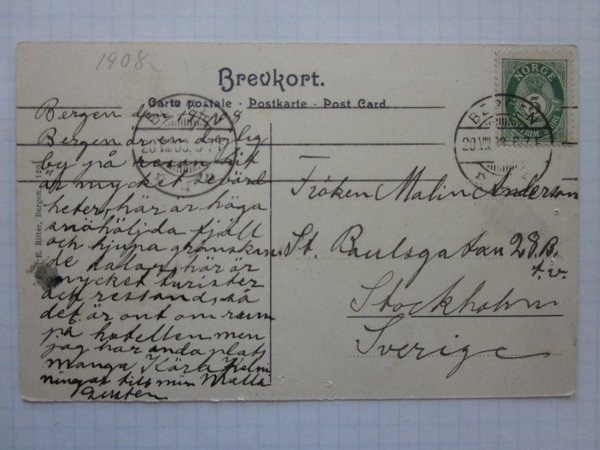 1908
Brevkort.
Carte postale - Postkarte - Post Card.
NORGE
5
BERGEN
BERGEN
Bergen den
Bergen är en
by på
är mycket
heter, här är höga
snöhöljda fjäll
och djupa grönskan
de dalar, här är
mycket turister
och ressande, så
det är ont om rum
på hotellen men
jag har ända plats
Många Kära
ningar till min Malli
Gersten
Fröken Malin Anderson
St. Paulsgatan 28. B.
t.v.
Stockholm
Sverige
E. Ritter, Bergen.